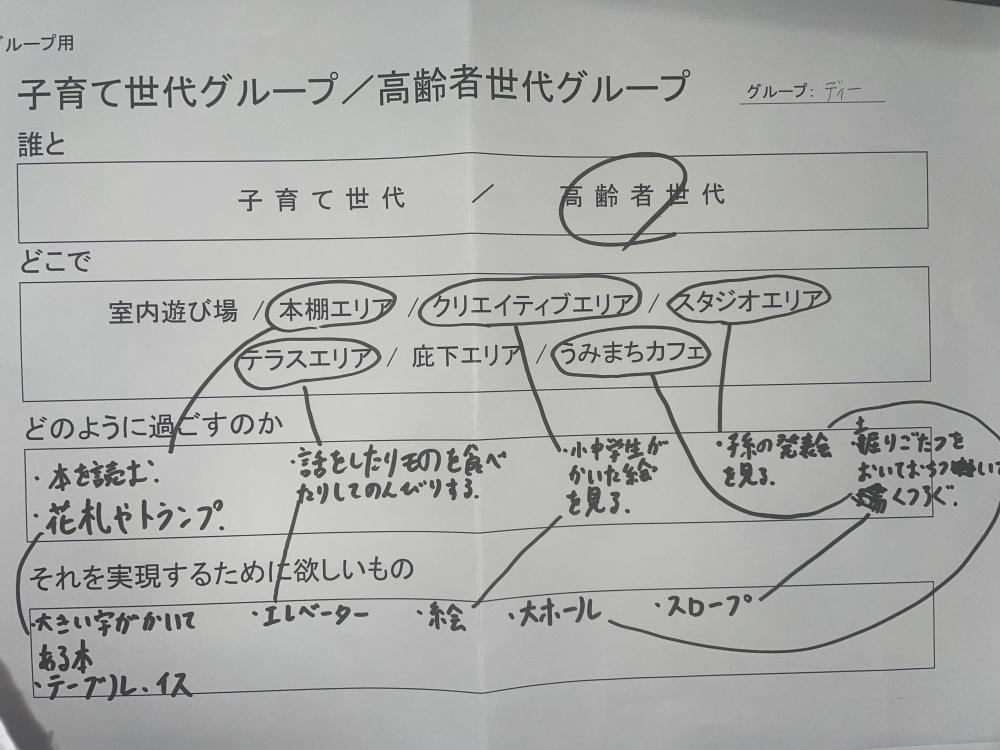 グループ用
子育て世代グループ／高齢者世代グループ
グループ: ディー
誰と
子育て世代 ／ 高齢者世代
どこで
室内遊び場 / 本棚エリア / クリエイティブエリア / スタジオエリア
テラスエリア / 庇下エリア / うみまちカフェ
どのように過ごすのか
・本を読む.
・花札やトランプ.
・話をしたりものを食べ
たりしてのんびりする.
・小中学生が
かいた絵
を見る.
・子孫の発表会
を見る.
・掘りごたつを
おいて
くつろぐ.
それを実現するために欲しいもの
・大きい字がかいて
ある本
・テーブル・イス
・エレベーター
・絵
・大ホール
・スロープ